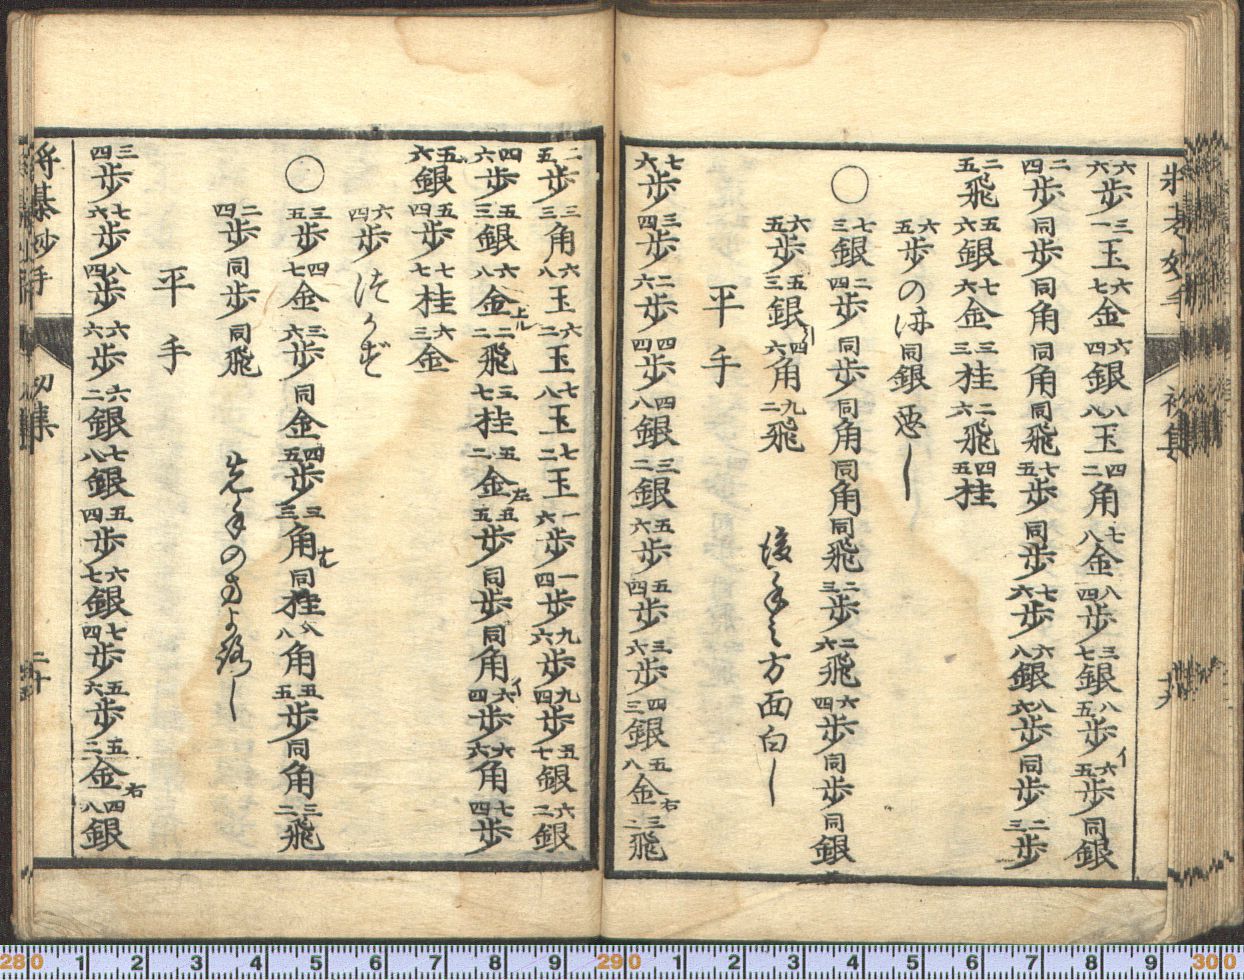 将棊妙手 初集 十九
六六歩三一玉六七金六四銀八八玉四二角七八金八四歩三七銀八五歩六五歩イ同銀
二四歩同歩同角同角同飛七五歩同歩七六歩六八銀八六歩同歩二三歩
二五飛五六銀七六金三三桂二六飛四五桂
六五歩の時同銀悪し
○七三銀二四歩同歩同角同角同飛二三歩二六飛六四歩同歩同銀
六五歩五三銀引四六角九二飛 後手之方面白し
平手
七六歩三四歩二六歩四四歩四八銀三二銀五六歩五四歩三六歩四三銀五八金右三二飛
一五歩三三角六八玉六二玉七八玉七二玉一六歩一四歩九六歩九四歩五七銀六二銀
四六歩五三銀六八金上ル二二飛三七桂五二金左五五歩同歩同角六四歩イ六六角七四歩
五六銀五四歩七七桂六三金
六四歩つかず
○三五歩四七金三六歩同金四五歩三三角ナル同桂八八角五五歩同角三二飛
二四歩同歩同飛 先手の方よろし
平手
三四歩七六歩八四歩六六歩六二銀七八銀五四歩六七銀七四歩五六歩五二金右四八銀
将棊妙手 初集 二十